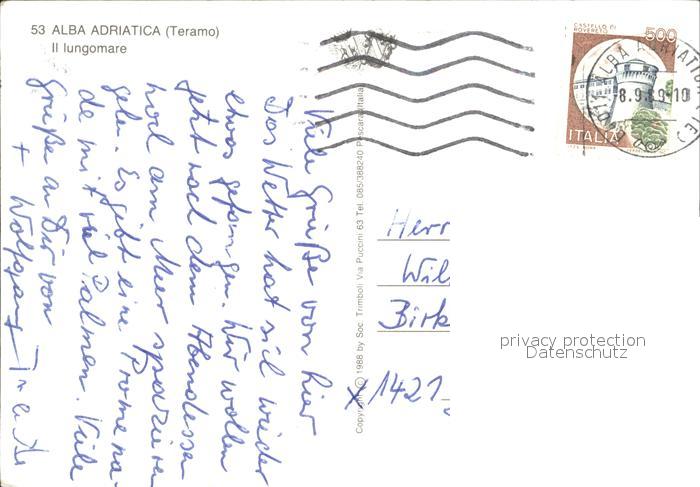 53 ALBA ADRIATICA (Teramo)
Il lungomare
Viele Grüße von hier
Das Wetter hat sich wieder
etwas gefangen. Wir wollen
jetzt nach dem Abendessen
noch am Meer spazieren
gehn. Es gibt eine Promena-
de mit viel Palmen. Viele
Grüße an Dir von
+ Wolfgang +
Copyright © 1988 by Soc. Trimboli Via Pucconi 63 Tel. 085/388240 Pescara (Italia)
CASTELLO DI
ROVERETO
500
ITALIA
ALBA ADRIATICA
-8.9.89-10
Herr
Wil
Birk
x1421
privacy protection
Datenschutz